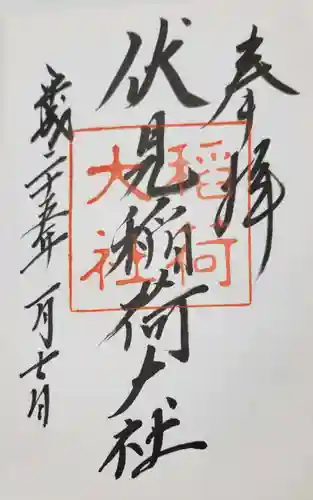 奉拝
伏見稲荷大社
稲荷
大社
二十五年一月七日